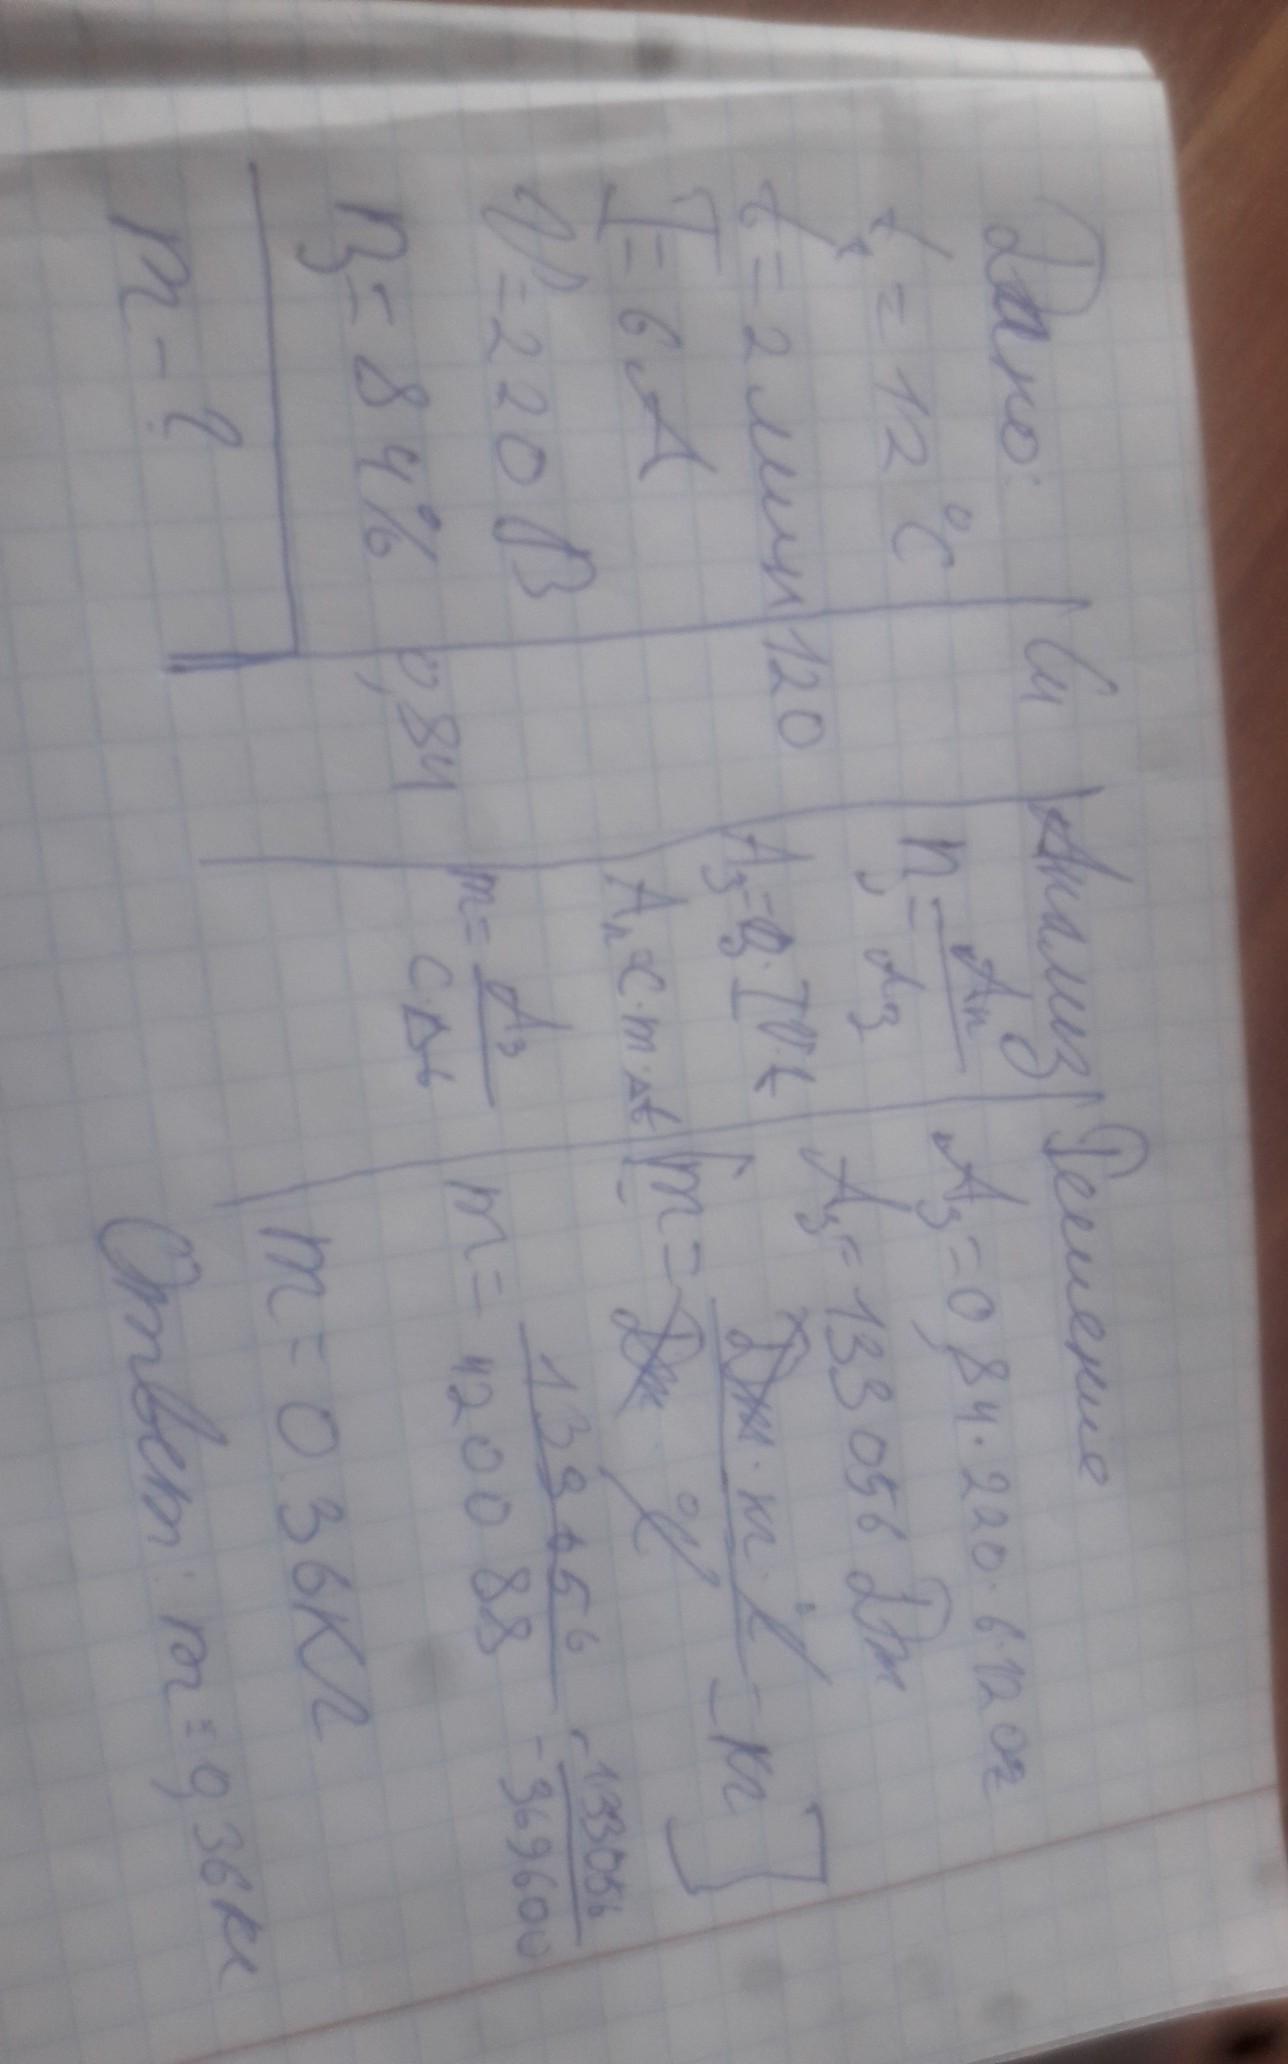 Дано:
t₁ = 12 °C
t = 2 мин
I = 6 А
U = 220 В
η = 84%
m - ?
Си
120
0,84
Анализ
η = Aп / Aз
Aз = η · I U · t
Aп = c · m · Δt
m = Aз / c · Δt
Решение
Aз = 0,84 · 220 · 6 · 120 =
Aз = 133056 Дж
[m = Дж · кг · °C / Дж °C = кг]
m = 133056 / 4200 88
133056
369600
m = 0.36 кг
Ответ: m = 0,36 кг